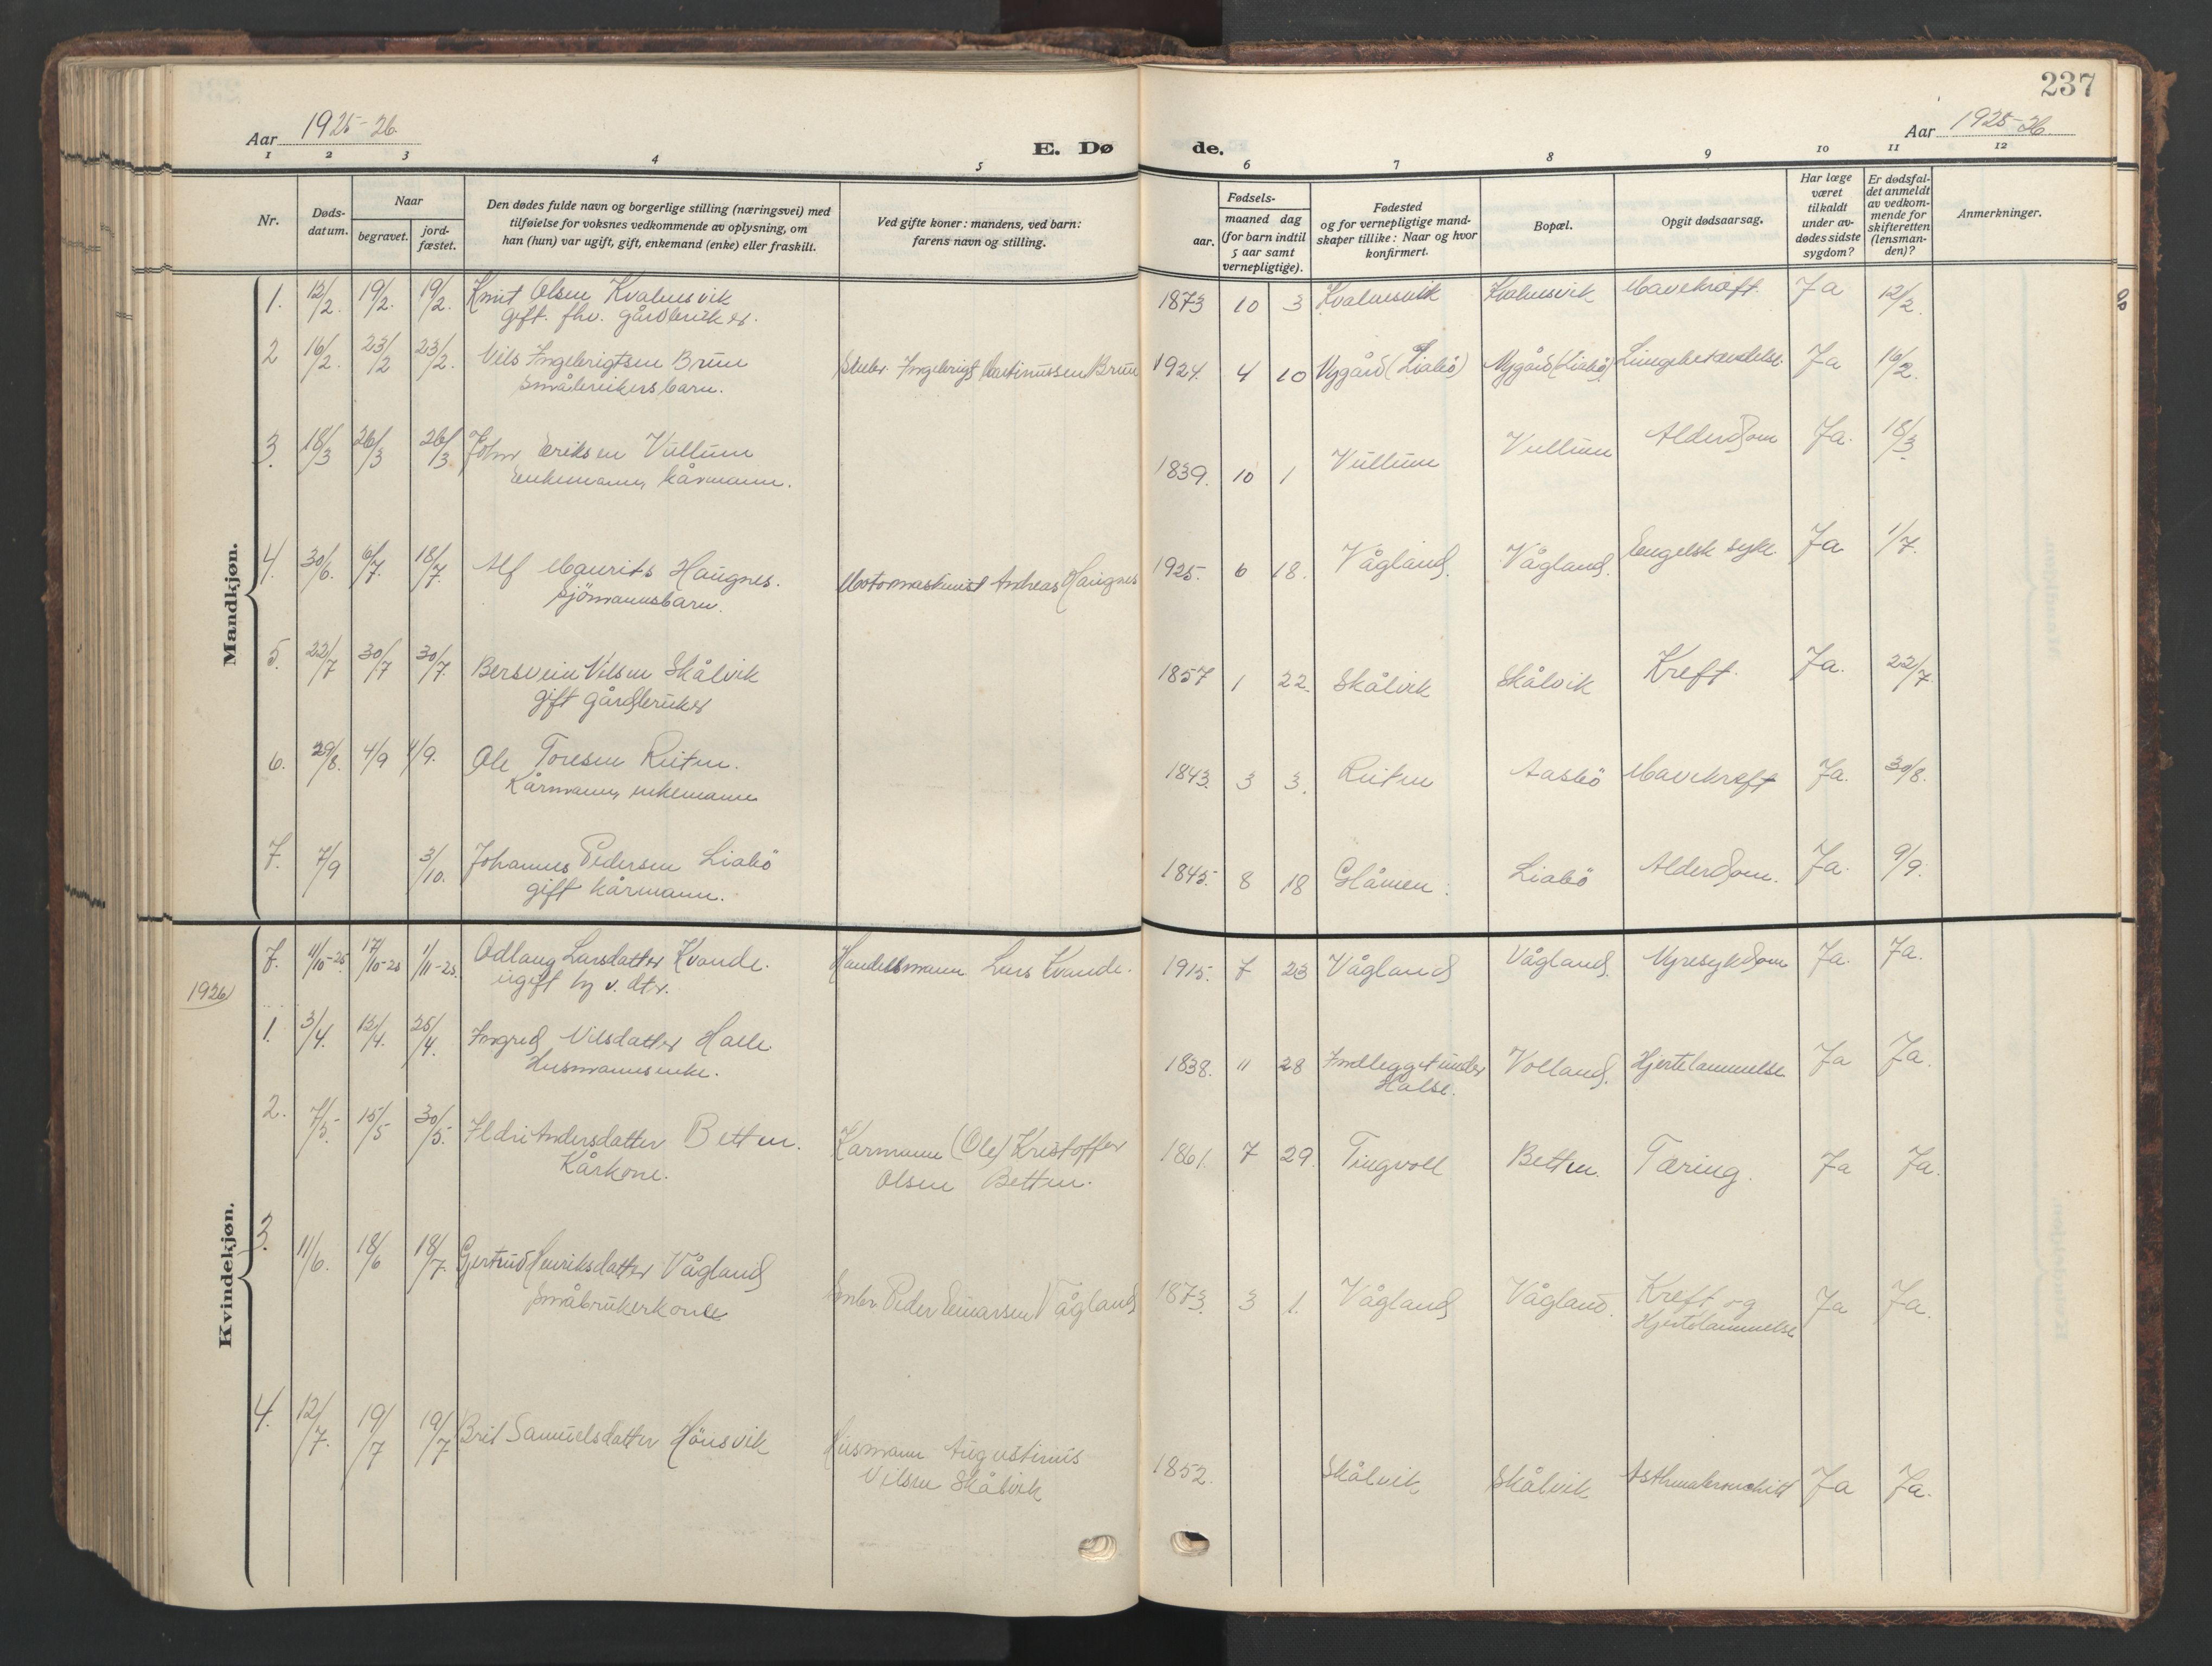 237
Aar 1925-26. E. Dø de. Aar 1925-26.
1 2 3 4 5 6 7 8 9 10 11 12
Nr.
Døds-
datum.
Naar
begravet.
jord-
fæstet.
Den dødes fulde navn og borgerlige stilling (næringsvei) med
tilføielse for voksnes vedkommende av oplysning, om
han (hun) var ugift, gift, enkemand (enke) eller fraskilt.
Ved gifte koner: mandens, ved barn:
farens navn og stilling.
Fødsels-
aar.
maaned dag
(for barn indtil
5 aar samt
vernepligtige).
Fødested
og for vernepligtige mand-
skaper tillike: Naar og hvor
konfirmert.
Bopæl.
Opgit dødsaarsag.
Har læge
været
tilkaldt
under av-
dødes sidste
sygdom?
Er dødsfal-
det anmeldt
av vedkom-
mende for
skifteretten
(lensman-
den)?
Anmerkninger.
Mandkjøn.
1. 12/2. 19/2. 19/2. Knut Olsen Kvalnesvik 1873 10 3 Kvalnesvik Kvalnesvik Mavekræft. Ja 12/2.
gift. fhv. gårdbruker.
2 16/2. 23/2 23/2. Nils Ingebrigtsen Brun Småbr. Ingebrigt Martinussen Brun 1924. 4 10 Nygård (Liabö) Nygård (Liabö) Lungebetændelse. Ja 16/2.
småbrukersbarn.
3. 18/3 26/3 26/3 John Eriksen Vullum 1839. 10 1 Vullum Vullum Alderdom Ja. 18/3.
Enkemann, kårmann.
4. 30/6. 6/7. 18/7. Alf Maurits Haugnes. Motormaskinist Andreas Haugnes 1925. 6 18. Vågland. Vågland. Engelsk syke. Ja 1/7.
sjömannsbarn.
5. 22/7 30/7 30/7. Bersvein Nilsen Skålvik 1857 1 22. Skålvik Skålvik Kreft. Ja. 22/7.
gift gårdbruker
6. 29/8. 4/9 4/9. Ole Toresen Ruten. 1843. 3 3. Ruten Aasbö Mavekræft Ja. 30/8.
Kårmann, enkemann
7. 7/9 3/10. Johannes Pedersen Liabö 1845. 8 18 Glåmen. Liabö Alderdom. Ja. 9/9.
gift kårmann.
Kvindekjøn.
7. 11/10-25 17/10-25 1/11-25. Odlaug Larsdatter Kvande. Handelsmann Lars Kvande. 1915. 7 23 Vågland Vågland. Nyresykdom Ja. Ja.
ugift hj. v. dtr.
1926
1. 3/4. 12/4. 25/4. Ingrid Nilsdatter Halle. 1838. 11 28 Indlegget under Volland. Hjertelammelse Ja Ja.
Husmannsenke. Halse.
2. 7/5. 15/5 30/5. Ildri Andersdatter Betten. Kårmann (Ole) Kristoffer 1861. 7 29. Tingvoll Betten. Tæring. Ja Ja.
Kårkone. Olsen Betten.
3. 11/6. 18/6 18/7. Gjertrud Henriksdatter Vågland Småbr. Peder Einarsen Vågland 1873. 3 1. Vågland Vågland. Kreft og Ja Ja.
småbrukerkone Hjertelammelse
4. 12/7. 19/7 19/7 Brit Samuelsdatter Hönsvik Husmann Augustinus 1852. Skålvik Skålvik Asthmabronchitt Ja Ja.
Nilsen Skålvik